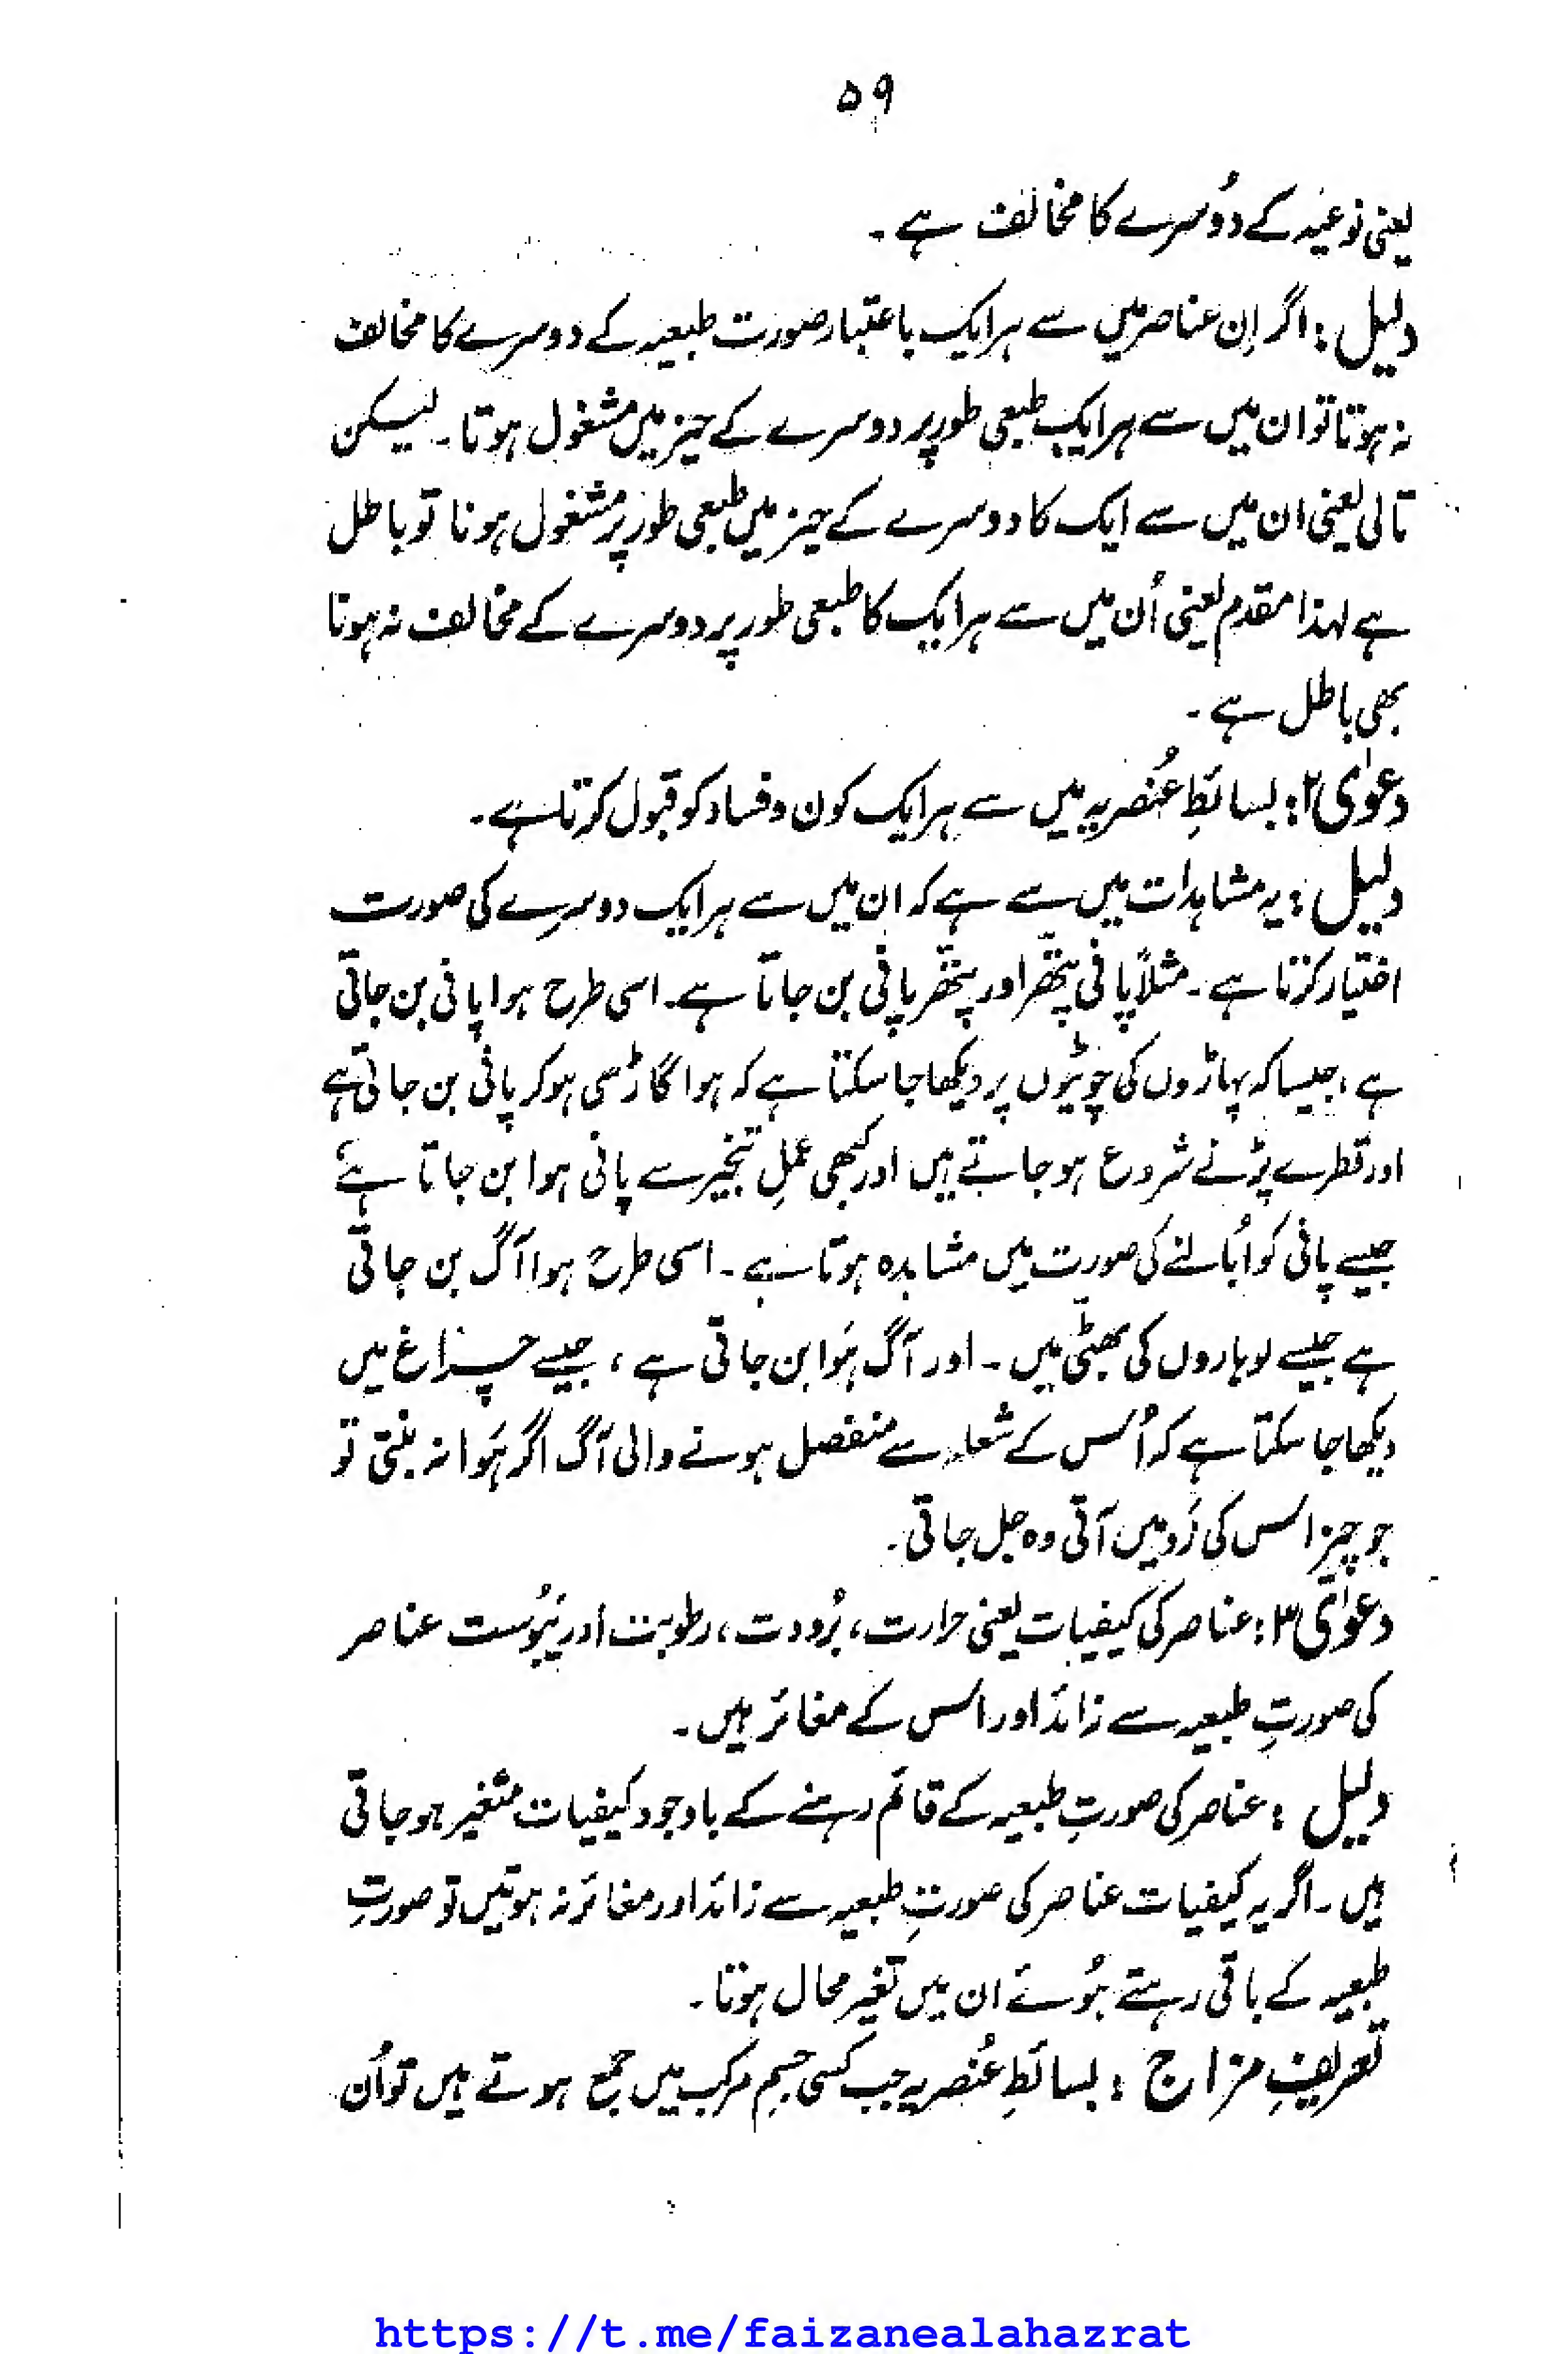 ۵۹
یعنی نوعیہ کے دُوسرے کا مخالف ہے۔
دلیل : اگر اِن عناصر میں سے ہر ایک باعتبار صورت طبعیہ کے دوسرے کا مخالف
نہ ہوتا تو ان میں سے ہر ایک طبعی طور پر دوسرے کے حیز میں مشغول ہوتا۔ لیکن
تالی یعنی ان میں سے ایک کا دوسرے کے حیز میں طبعی طور پر مشغول ہونا تو باطل
ہے لہذا مقدم یعنی اُن میں سے ہر ایک کا طبعی طور پر دوسرے کے مخالف نہ ہونا
بھی باطل ہے۔
دعوٰی ۲ : بسائطِ عُنصریہ میں سے ہر ایک کون و فساد کو قبول کرتا ہے۔
دلیل : یہ مشاہدات میں سے ہے کہ ان میں سے ہر ایک دوسرے کی صورت
اختیار کرتا ہے۔ مثلاً پانی پتھر اور پتھر پانی بن جاتا ہے۔ اسی طرح ہوا پانی بن جاتی
ہے، جیسا کہ پہاڑوں کی چوٹیوں پر دیکھا جا سکتا ہے کہ ہوا گاڑھی ہو کر پانی بن جاتی ہے
اور قطرے پڑنے شروع ہو جاتے ہیں اور کبھی عملِ تبخیر سے پانی ہوا بن جاتا ہے
جیسے پانی کو اُبالنے کی صورت میں مشاہدہ ہوتا ہے۔ اسی طرح ہوا آگ بن جاتی
ہے جیسے لوہاروں کی بھٹی میں۔ اور آگ ہَوا بن جاتی ہے، جیسے چراغ میں
دیکھا جا سکتا ہے کہ اُس کے شعلہ سے منفصل ہونے والی آگ اگر ہَوا نہ بنتی تو
جو چیز اس کی زَد میں آتی وہ جل جاتی۔
دعوٰی ۳ : عناصر کی کیفیات یعنی حرارت، بُرودت، رطوبت اور یَبُوست عناصر
کی صورتِ طبعیہ سے زائد اور اس کے مغائر ہیں۔
دلیل : عناصر کی صورتِ طبعیہ کے قائم رہنے کے باوجود کیفیات متغیر ہو جاتی
ہیں۔ اگر یہ کیفیات عناصر کی صورتِ طبعیہ سے زائد اور مغائر نہ ہوتیں تو صورتِ
طبعیہ کے باقی رہتے ہُوئے ان میں تغیر محال ہوتا۔
تعریفِ مزاج : بسائطِ عُنصریہ جب کسی جسمِ مرکب میں جمع ہوتے ہیں تو اُن
https://t.me/faizanealahazrat